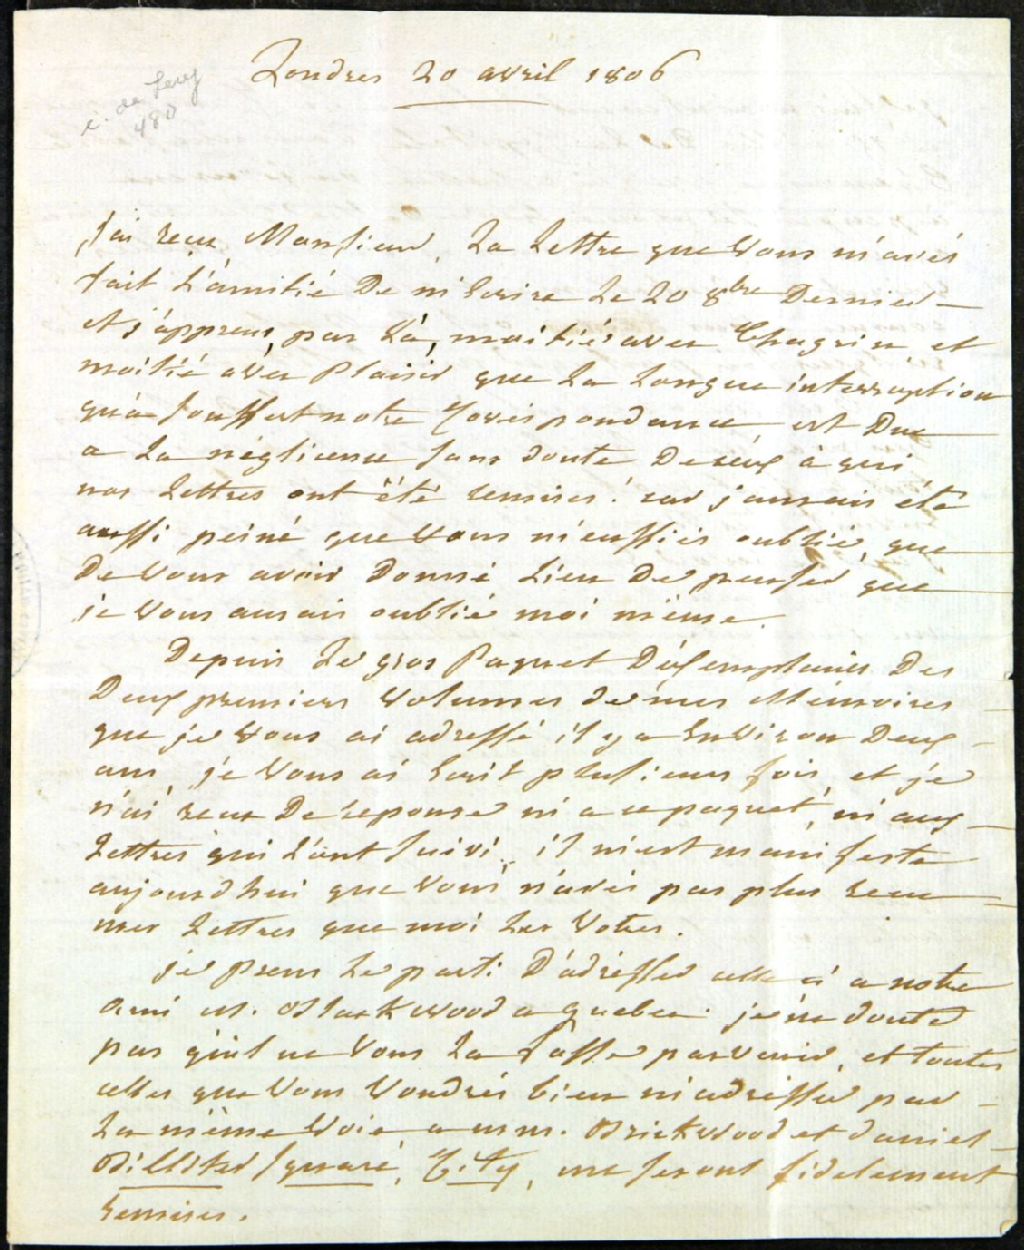 Londres 20 avril 1806
480
J'ai reçu Monsieur, La Lettre que Vous m'avés
fait L'amitié De m'Ecrire Le 20 8bre Dernier
et j'apprens, par Là, moitié aver Chagrin et
moitié avec Plaisir que La Longue interruption
qu'a souffert notre Correspondance, est Due
a La négligence sans doute De ceux à qui
nos Lettres ont été remises! car j'aurais été
aussi peiné que Vous m'eussiés oublié, que
De Vous avoir Donné Lieu De penser que
je Vous aurais oublié moi même.
Depuis Le gros Paquet D'Exemplaires Des
Deux premiers Volumes de mes Mémoires
que je Vous ai adressé il y a Environ Deux
ans je Vous ai Ecrit plusieurs fois et je
n'ai reçu De reponse ni a ce paquet, ni aux
Lettres qui L'ont suivi, il m'est manifeste
aujourdhui que Vous n'avés pas plus reçu
mes Lettres que moi Les Votres.
je Prens Le parti D'adresser celle ci a notre
ami M. Blackwood a Quebec. je ne doute
pas qu'il ne Vous La fasse parvenir, et toutes
celles que Vous Voudrés bien m'adresser par
La même Voie a mrs. Brickwood et Daniel
Billiter Square, City, me seront fidelement
remises.